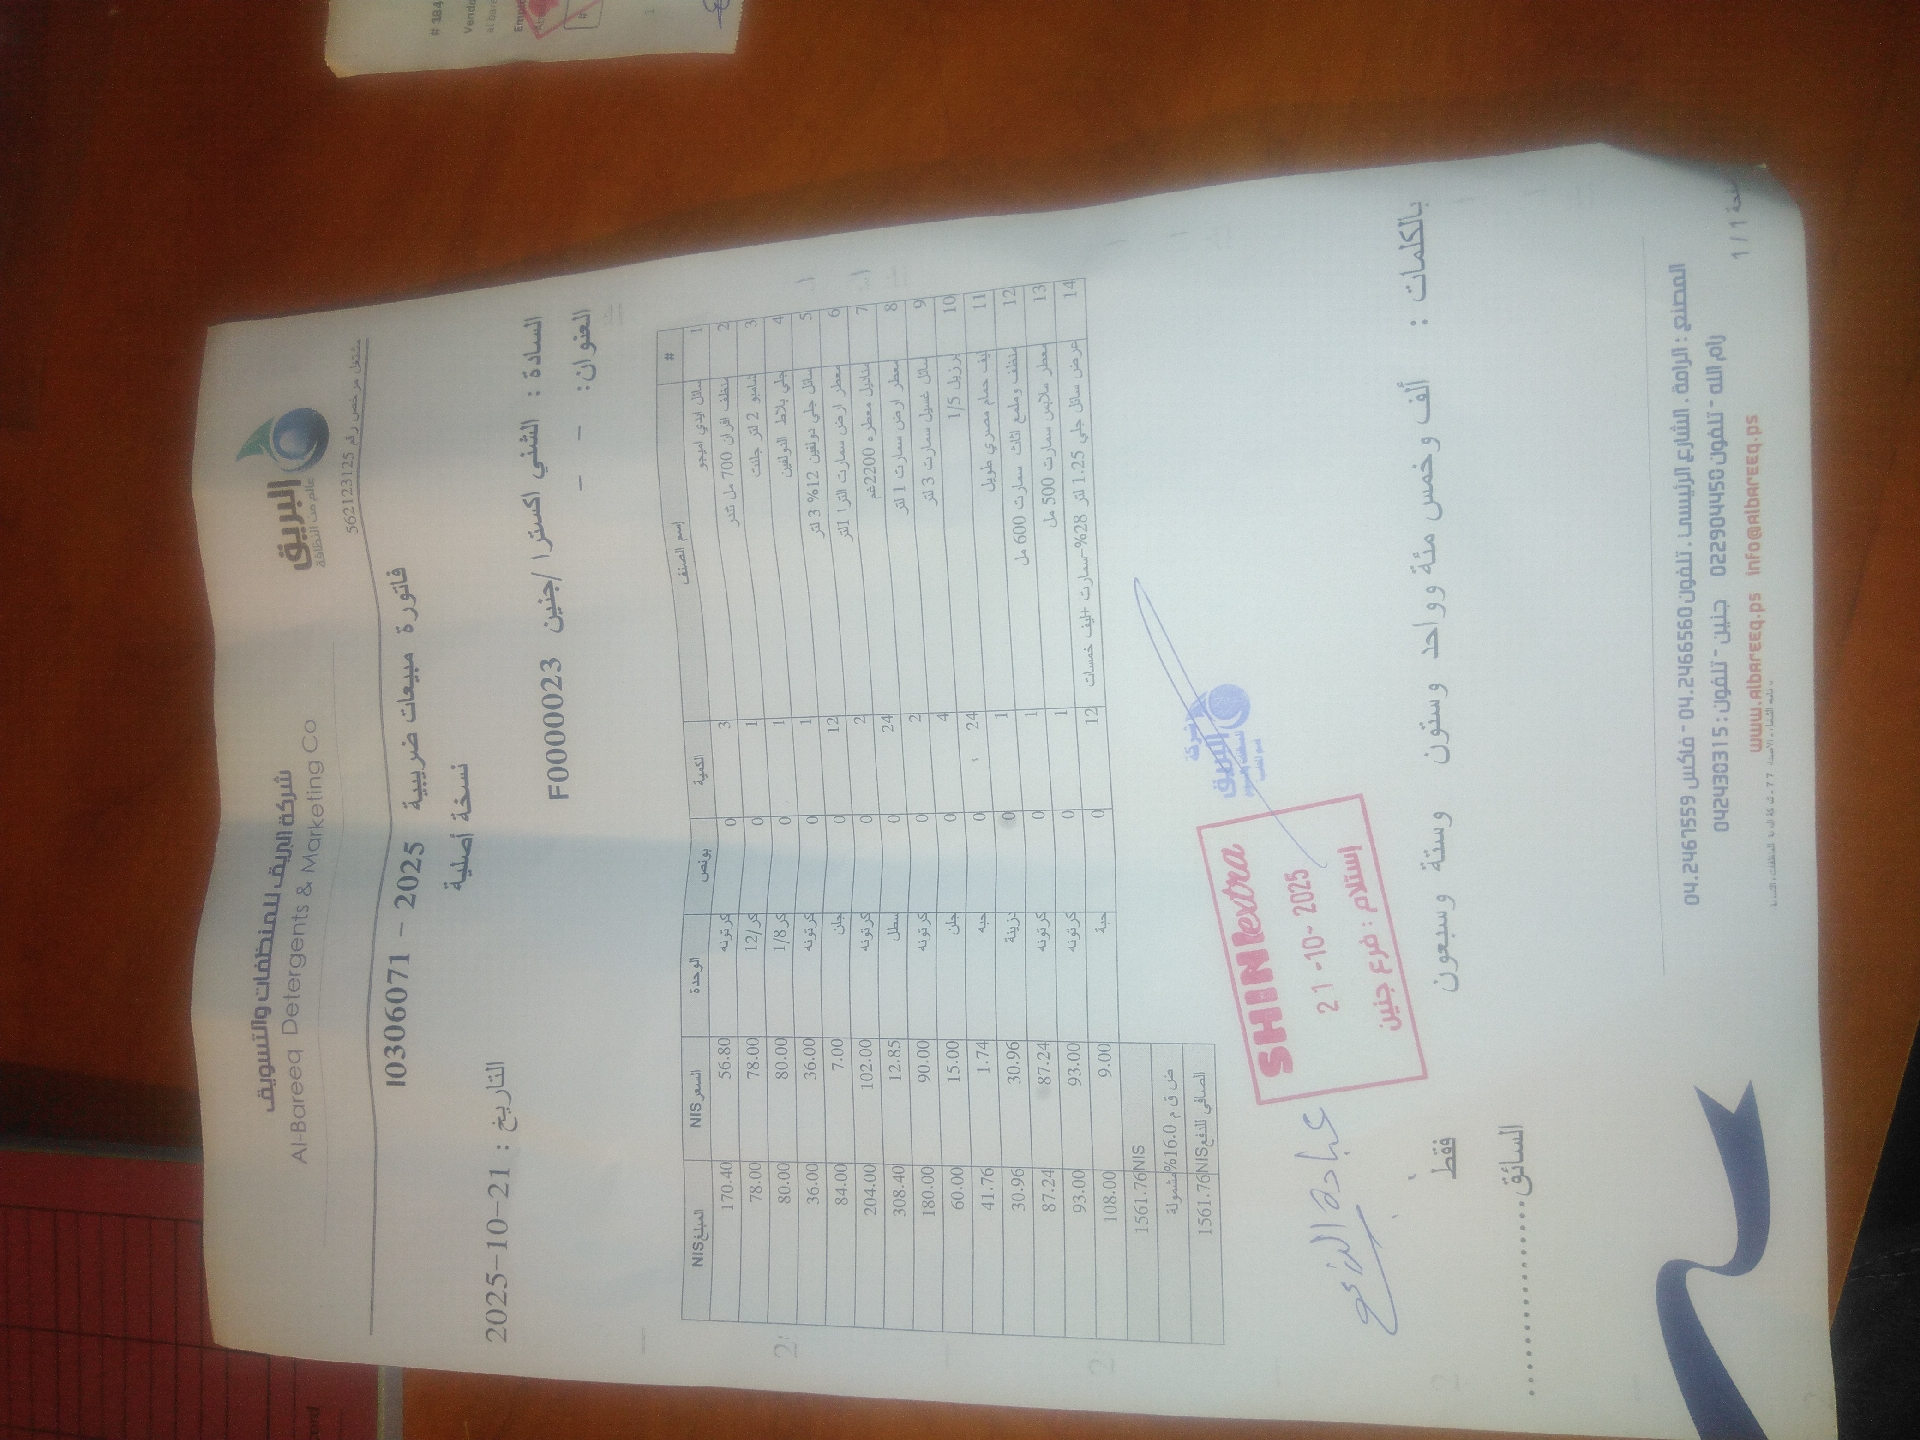 شركة البريق للمنظفات والتسويق
Al-Bareeq Detergents & Marketing Co
البريق
عالم من النظافة
مشتغل مرخص رقم 562123125
فاتورة مبيعات ضريبية 2025 - I0306071
نسخة أصلية
التاريخ : 2025-10-21
السادة : الشني اكسترا /جنين F0000023
العنوان: - -
# إسم الصنف الكمية بونص الوحدة السعر NIS المبلغ NIS
1 سائل ايدي اميجو 3 0 كرتونه 56.80 170.40
2 منظف افران 700 مل ثندر 1 0 كر/12 78.00 78.00
3 شامبو 2 لتر جلنت 1 0 كر 1/8 80.00 80.00
4 جلي بلاط الدولفين 1 0 كرتونه 36.00 36.00
5 سائل جلي دولفين 12% 3 لتر 12 0 جلن 7.00 84.00
6 معطر ارض سمارت الترا 1لتر 2 0 كرتونه 102.00 204.00
7 مناديل معطره 2200غم 24 0 سطل 12.85 308.40
8 معطر ارض سمارت 1 لتر 2 0 كرتونه 90.00 180.00
9 سائل غسيل سمارت 3 لتر 4 0 جلن 15.00 60.00
10 برزيل 1/5 24 0 حبه 1.74 41.76
11 ليف حمام مصري طويل 1 0 30.96 30.96
12 منظف وملمع اثاث سمارت 600 مل 1 0 كرتونه 87.24 87.24
13 معطر ملابس سمارت 500 مل 1 0 كرتونه 93.00 93.00
14 عرض سائل جلي 1.25 لتر 28%-سمارت +ليف خمسات 12 0 حبة 9.00 108.00
1561.76NIS
ض ق م 16.0% مشمولة
الصافي للدفع 1561.76NIS
شركة
البريق
SHINI extra
21-10-2025
إستلام : فرع جنين
بالكلمات : ألف وخمس مئة وواحد وستون وستة وسبعون
فقط
السائق
المصنع : الرامة . الشارع الرئيسي . تلفون 04.2466560 - فاكس 04.2467559
رام الله - تلفون 022904450 جنين - تلفون : 042430315
www.albareeq.ps info@albareeq.ps
1 / 1
# 184